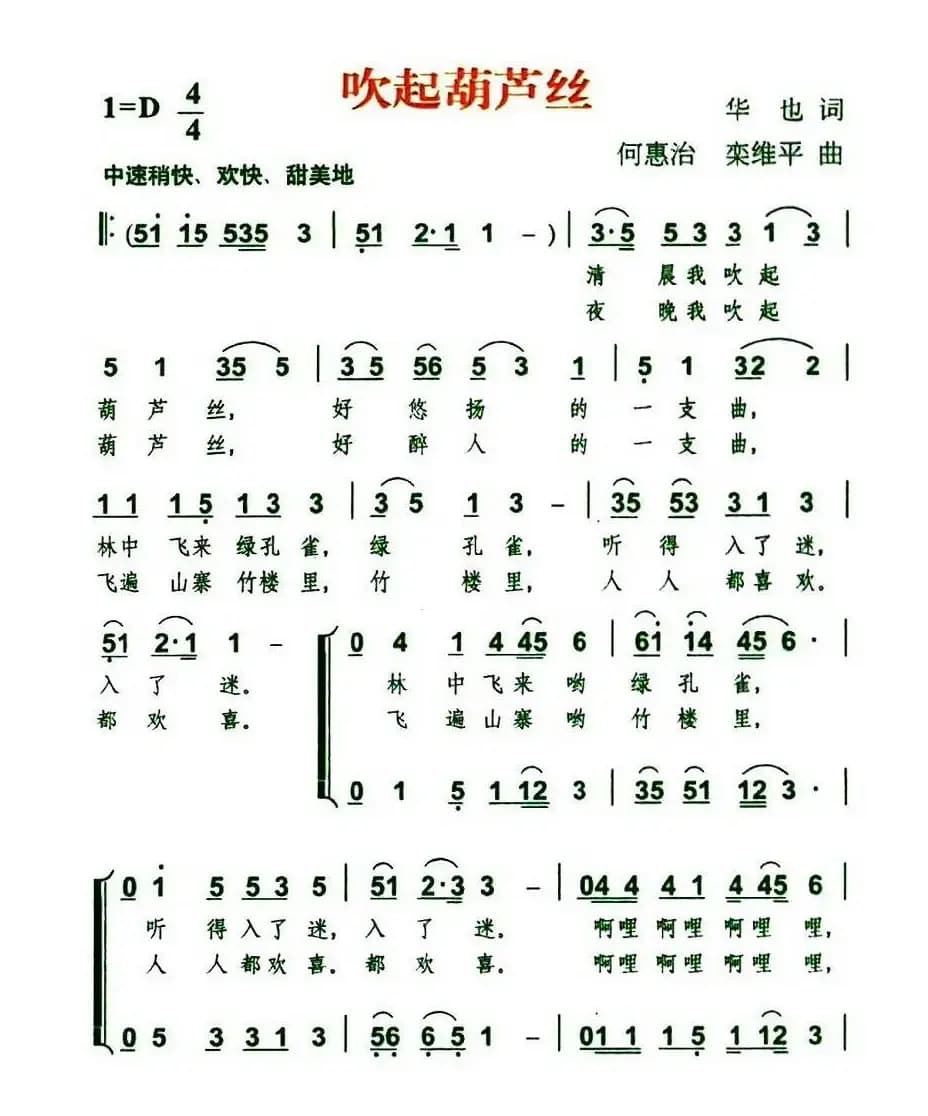 吹起葫芦丝
1=D 4/4
华 也 词
何惠治 栾维平 曲
中速稍快、欢快、甜美地
‖: (5 1̇ 1̇ 5 5 3 5 3 | 5̣ 1 2·1 1 – ) | 3·5 5 3 3 1 3 |
清 晨 我 吹 起
夜 晚 我 吹 起
5 1 3 5 5 | 3 5 5 6 5 3 1 | 5̣ 1 3 2 2 |
葫 芦 丝, 好 悠 扬 的 一 支 曲,
葫 芦 丝, 好 醉 人 的 一 支 曲,
1 1 1 5̣ 1 3 3 | 3 5 1 3 – | 3 5 5 3 3 1 3 |
林中 飞来 绿孔 雀, 绿 孔 雀, 听 得 入了 迷,
飞遍 山寨 竹楼 里, 竹 楼 里, 人 人 都喜 欢。
5̣ 1 2·1 1 – 0 4 1 4 4 5 6 | 6 1̇ 1̇ 4 4 5 6 · |
入 了 迷。 林 中 飞 来 哟 绿 孔 雀,
都 欢 喜。 飞 遍 山 寨 哟 竹 楼 里,
0 1 5̣ 1 1 2 3 | 3 5 5 1 1 2 3 · |
0 1̇ 5 5 3 5 | 5 1 2·3 3 – | 0 4 4 4 1 4 4 5 6 |
听 得 入 了 迷, 入 了 迷。 啊哩 啊哩 啊哩 哩,
人 人 都 欢 喜。 都 欢 喜。 啊哩 啊哩 啊哩 哩,
0 5 3 3 1 3 | 5̣ 6̣ 6̣ 5̣ 1 – | 0 1 1 1 5̣ 1 1 2 3 |